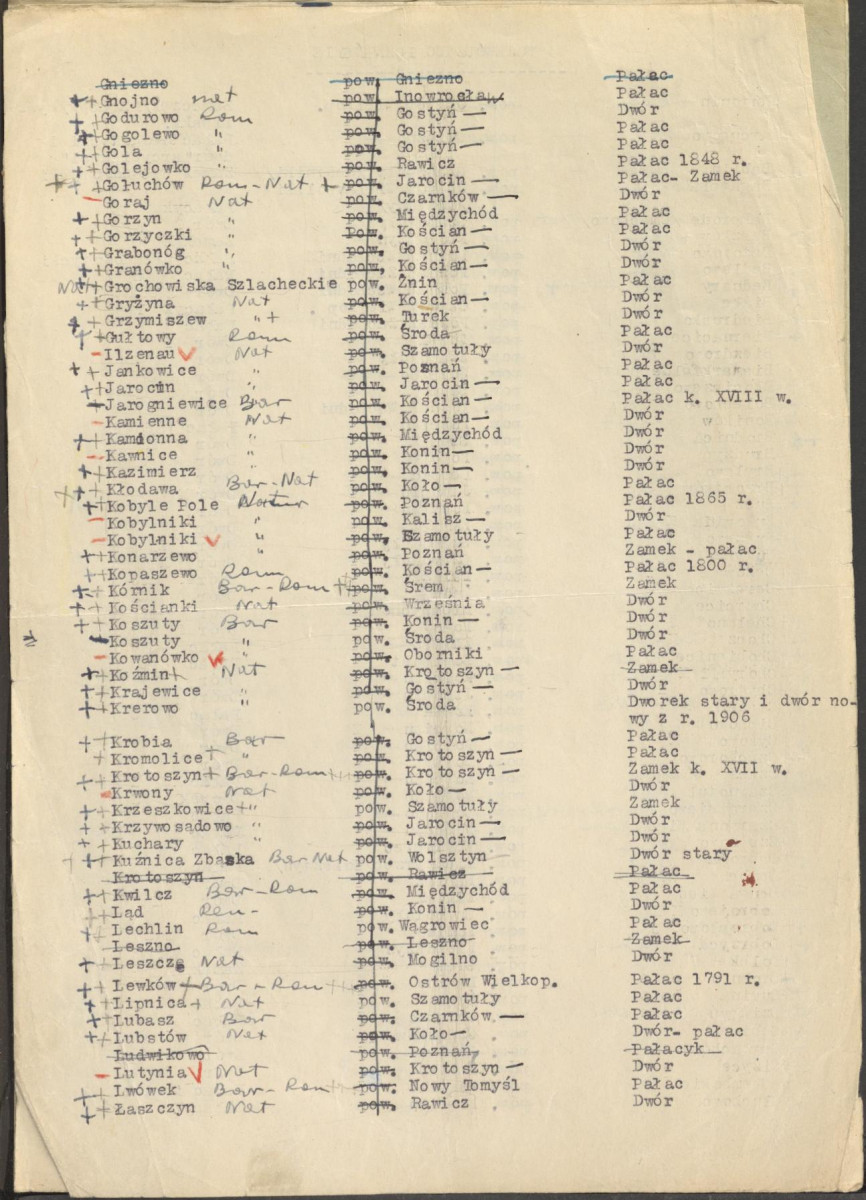 Gniezno pow. Gniezno Pałac
++Gnojno nat pow. Inowrocław Pałac
++Godurowo Rom pow. Gostyń — Dwór
++Gogolewo " pow. Gostyń — Pałac
++Gola " pow. Gostyń — Pałac
++Golejowko " pow. Rawicz Pałac 1848 r.
+++Gołuchów Rom-Nat + pow. Jarocin — Pałac- Zamek
—Goraj Nat pow. Czarnków — Dwór
++Gorzyn " pow. Międzychód Pałac
++Gorzyczki " Pow. Kościan — Pałac
++Grabonóg " pow. Gostyń — Dwór
++Granówko " pow, Kościan — Dwór
Nat+Grochowiska Szlacheckie pow. Żnin Pałac
++Gryżyna Nat pow. Kościan — Dwór
++Grzymiszew "+ pow. Turek Dwór
++Gułtowy Rom pow. Środa Pałac
—Ilzenau V Nat pow. Szamotuły Dwór
++Jankowice " pow. Poznań Pałac
++Jarocin " pow. Jarocin — Pałac
+Jarogniewice Bar pow. Kościan — Pałac k. XVIII w.
—Kamienne Nat pow. Kościan — Dwór
++Kamionna " pow. Międzychód Dwór
—Kawnice " pow. Konin — Dwór
++Kazimierz " pow. Konin — Dwór
+++Kłodawa Bar-Nat pow. Koło — Pałac
++Kobyle Pole Natur pow. Poznań Pałac 1865 r.
—Kobylniki " pow. Kalisz — Dwór
—Kobylniki V " pow. Szamotuły Pałac
++Konarzewo " pow. Poznań Zamek - pałac
++Kopaszewo Rom pow. Kościan — Pałac 1800 r.
++Kórnik Bar-Rom ++ pow. Śrem Zamek
++Kościanki Nat pow. Września Dwór
++Koszuty Bar pow. Konin — Dwór
+Koszuty " pow. Środa Dwór
—Kowanówko V " pow. Oborniki Pałac
++Koźmin+ Nat pow. Krotoszyn — Zamek
++Krajewice " pow. Gostyń — Dwór
++Krerowo " pow. Środa Dworek stary i dwór no-
wy z r. 1906
++Krobia Bar pow. Gostyń — Pałac
+Kromolice+ " pow. Krotoszyn — Pałac
++Krotoszyn+ Bar-Rom++ pow. Krotoszyn — Zamek k. XVII w.
—Krwony Nat pow. Koło — Dwór
++Krzeszkowice+" pow. Szamotuły Zamek
++Krzywosądowo " pow. Jarocin — Dwór
++Kuchary " pow. Jarocin — Dwór
+++Kuźnica Zbąska Bar Nat pow. Wolsztyn Dwór stary
Krotoszyn pow. Rawicz Pałac
++Kwilcz Bar-Rom pow. Międzychód Pałac
++Ląd Ren- pow. Konin — Dwór
++Lechlin Rom pow. Wągrowiec Pałac
Leszno pow. Leszno Zamek
++Leszcze Nat pow. Mogilno Dwór
++Lewków+Bar-Rom++ pow. Ostrów Wielkop. Pałac 1791 r.
++Lipnica+ Nat pow. Szamotuły Pałac
++Lubasz Bar pow. Czarnków. — Pałac
++Lubstów Nat pow. Koło — Dwór- pałac
Ludwikowo pow. Poznań Pałacyk
—Lutynia V Nat pow. Krotoszyn — Dwór
++Lwówek Bar-Rom+ pow. Nowy Tomyśl Pałac
++Łaszczyn Nat pow. Rawicz Dwór